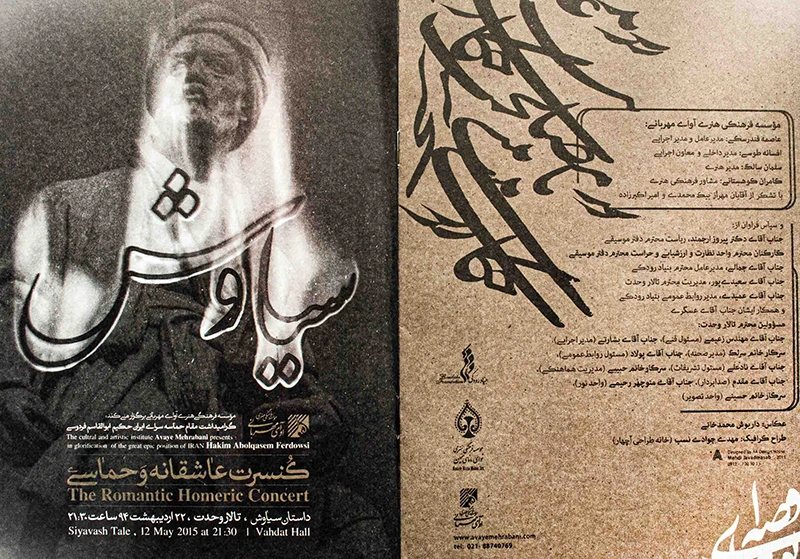 سیاوش
مؤسسه فرهنگی هنری آوای مهربانی برگزار می‌کند:
گرامیداشت مقام حماسه سرای ایران حکیم ابوالقاسم فردوسی
The cultral and artistic institute Avaye Mehrabani presents :
in glorification of the great epic position of IRAN Hakim Abolqasem Ferdowsi
کنسرت عاشقانه و حماسی
The Romantic Homeric Concert
داستان سیاوش ، تالار وحدت ، ۲۲ اردیبهشت ۹۴ ساعت ۲۱:۳۰
Siyavash Tale , 12 May 2015 at 21:30 | Vahdat Hall
مؤسسه فرهنگی هنری آوای مهربانی:
عاصمه قندرسکی: مدیر عامل و مدیر اجرایی
افسانه طوسی: مدیر داخلی و معاون اجرایی
سلمان سالک: مدیر هنری
کامران کوهستانی: مشاور فرهنگی هنری
با تشکر از آقایان مهراز بیک محمدی و امیر اکبرزاده
و سپاس فراوان از:
جناب آقای دکتر پیروز ارجمند، ریاست محترم دفتر موسیقی
کارکنان محترم واحد نظارت و ارزشیابی و حراست محترم دفتر موسیقی
جناب آقای جمالی، مدیرعامل محترم بنیاد رودکی
جناب آقای سعیدی پور، مدیریت محترم تالار وحدت
جناب آقای عمیدی، مدیر روابط عمومی بنیاد رودکی
و همکار ایشان جناب آقای عسکری
مسؤولین محترم تالار وحدت:
جناب آقای مهندس زعیمی (مسئول فنی)، جناب آقای بشارتی (مدیر اجرایی)
سرکار خانم سرلک (مدیر صحنه)، جناب آقای پولاد (مسئول روابط عمومی)،
جناب آقای نادعلی (مسئول تشریفات)، سرکار خانم حبیبی (مدیریت هماهنگی)،
جناب آقای مقدم (صدابردار)، جناب آقای منوچهر رحیمی (واحد نور)،
سرکار خانم حسینی (واحد تصویر)
عکاس: داریوش محمدخانی
طراح گرافیک: مهدی جوادی نسب (خانه طراحی آپهان)
Mehdi Javadinasab
www.avayemehrabani.com
tel: 021- 88740769